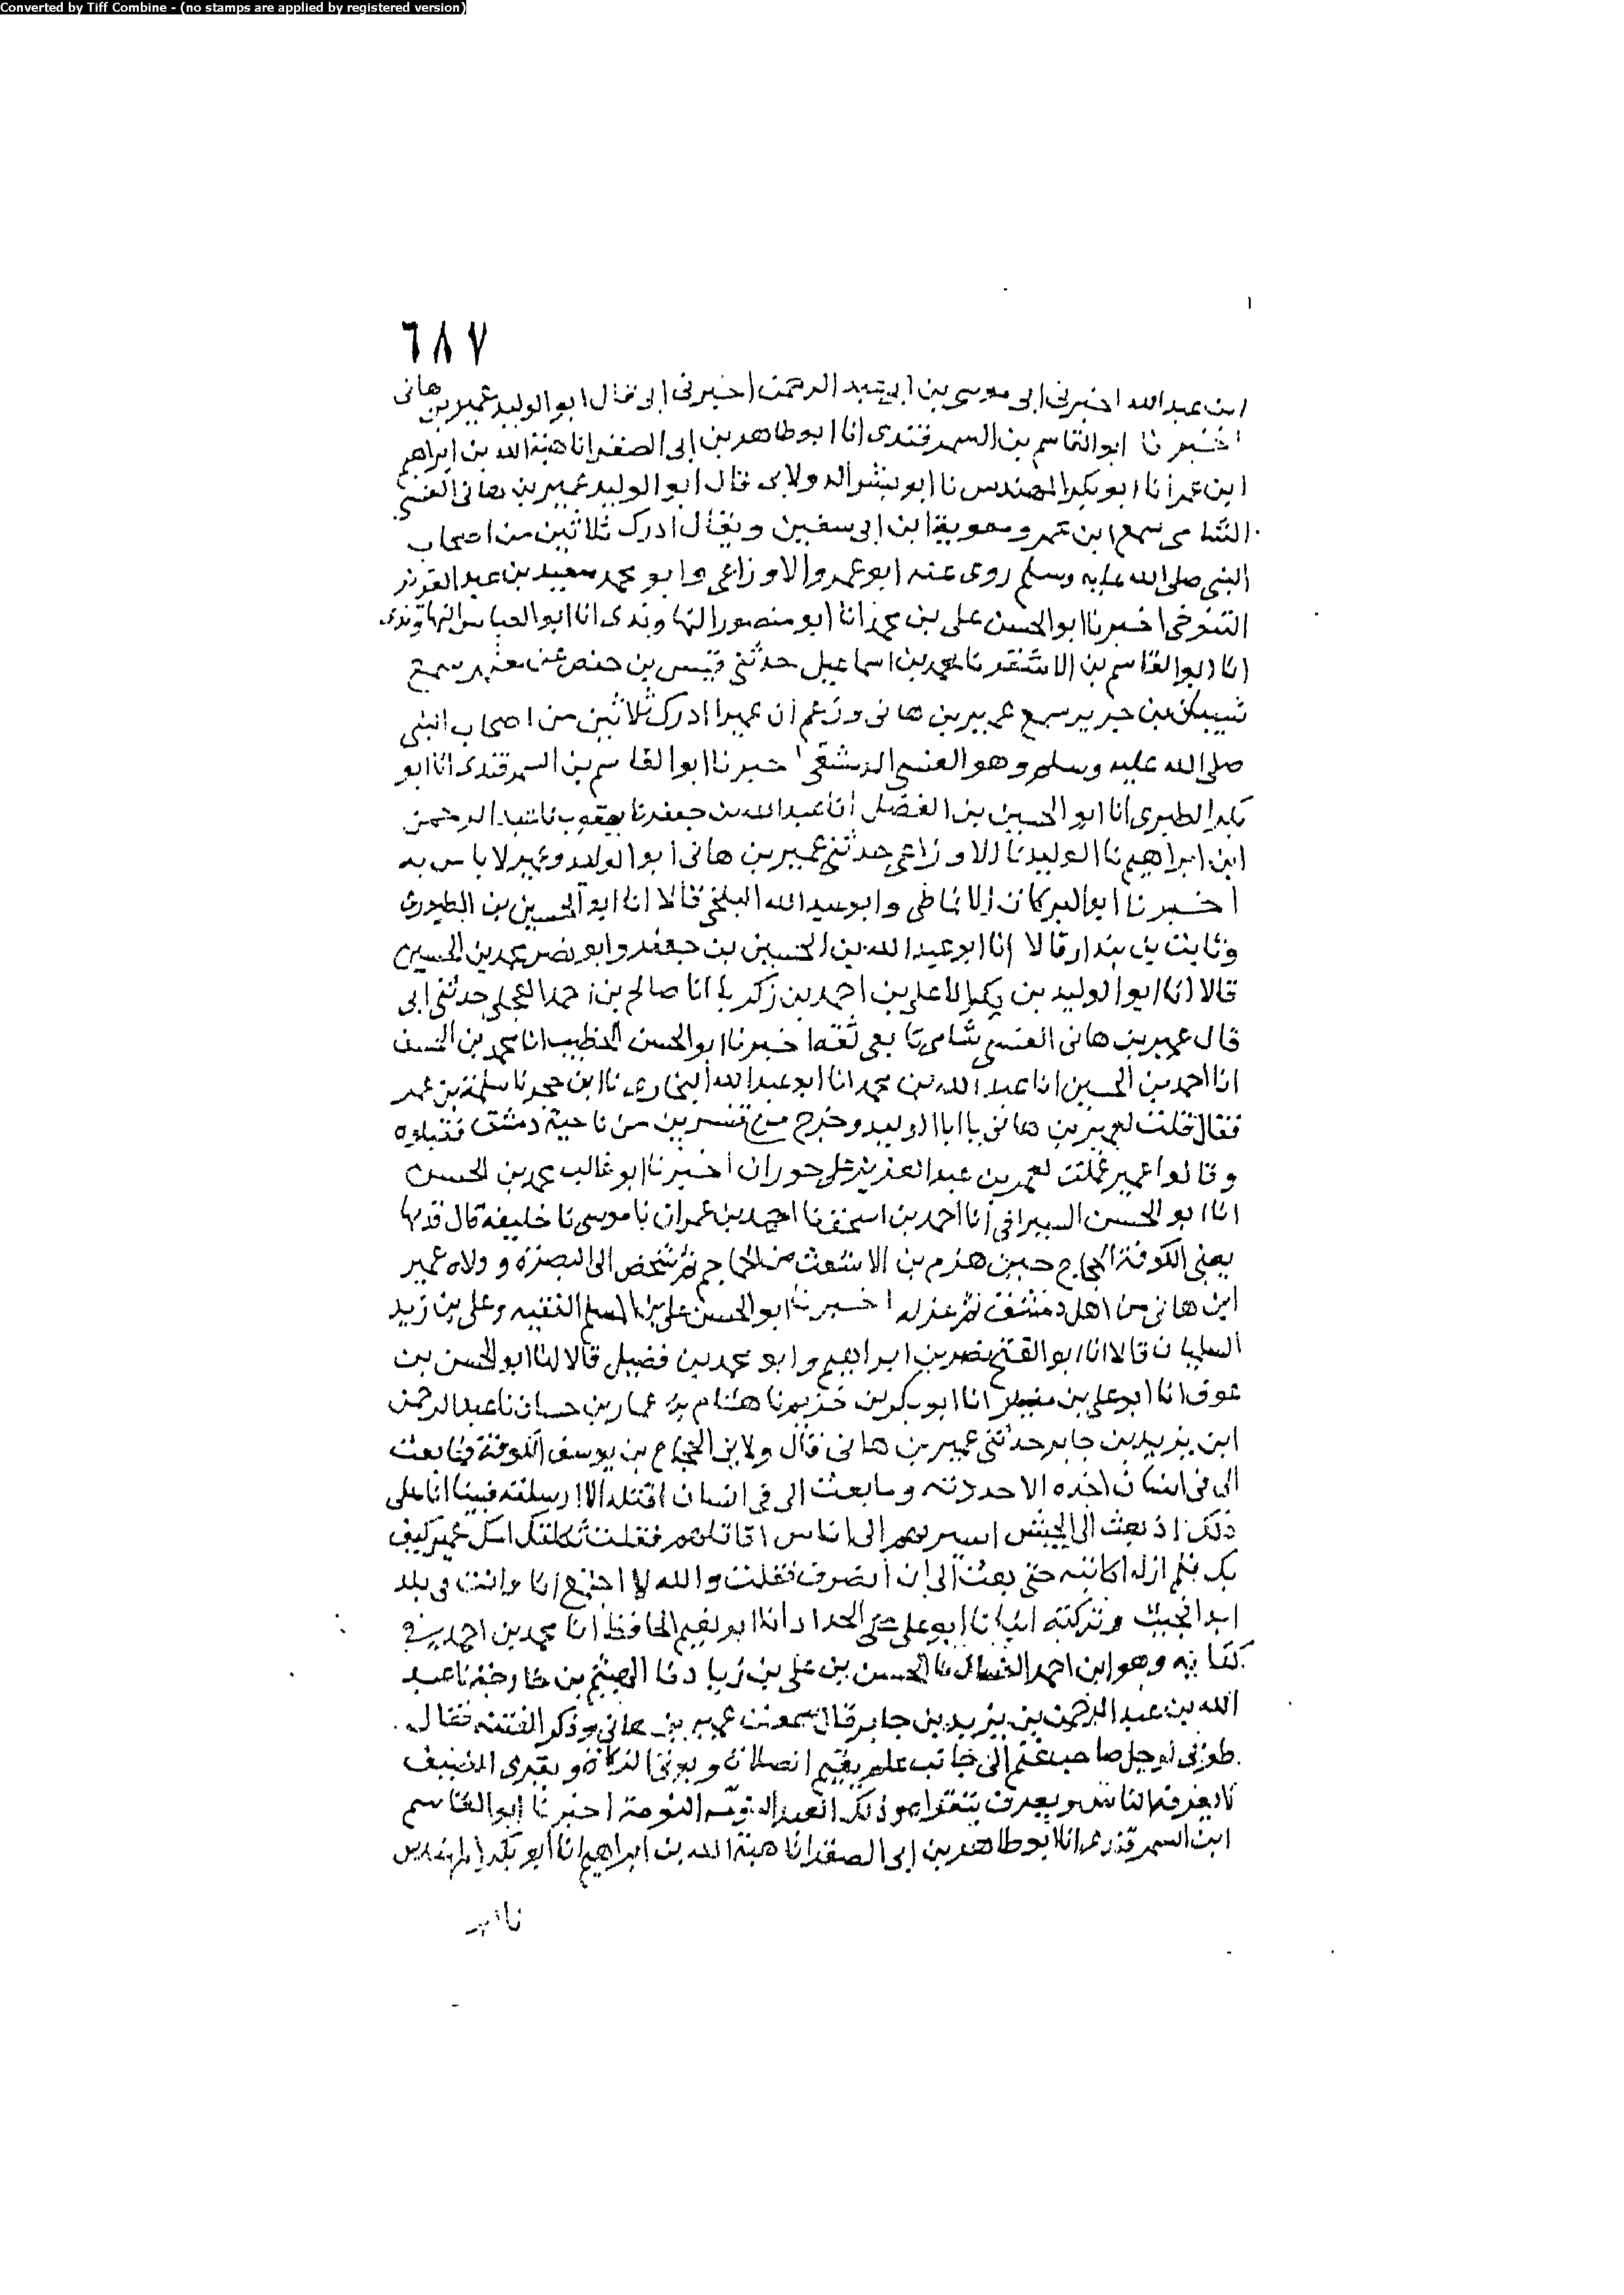 Converted by Tiff Combine - (no stamps are applied by registered version)
٦٨٧
ابن عبد الله اخبرني ابى موسى بن ابى عبد الرحمن اخبرنى ابى قال ابو الوليد عمير بن هانى
اخبرنا ابو القاسم بن السمرقندى انا ابو طاهر بن ابى الصقر انا هبة الله بن ابراهيم
ابن عمر أنا ابو بكر المهندس نا ابو بشر الدولابى قال ابو الوليد عمير بن هانى العنسى
الشامى سمع ابن عمر ومعوية ابن ابى سفين ويقال ادرك ثلاثين من اصحاب
النبى صلى الله عليه وسلم روى عنه ابو عمرو الاوزاعى وابو محمد سعيد بن عبد العزيز
التنوخى اخبرنا ابو الحسن على بن محمد انا ابو منصور النهاوندى انا ابو العباس النهاوندى
انا ابو القاسم بن الاشقر نا محمد بن اسماعيل حدثنى قيس بن حفص عن معتمر سمع
شبيل بن جرير سمع عمير بن هانى وزعم ان عميرا ادرك ثلاثين من اصحاب النبى
صلى الله عليه وسلم وهو العنسى الدمشقى اخبرنا ابو القاسم بن السمرقندى انا ابو
بكر الطبرى انا ابو الحسين بن الفضل انا عبد الله بن جعفر نا يعقوب نا عبد الرحمن
ابن ابراهيم نا الوليد نا الاوزاعى حدثنى عمير بن هانى ابو الوليد وعمير لا باس به
اخبرنا ابو البركات الانماطى وابو عبد الله البلخى قالا انا ابو الحسين بن الطيورى
وثابت بن بندار قالا انا ابو عبد الله بن الحسين بن جعفر وابو نصر محمد بن الحسين
قالا انا ابو الوليد بن بكر نا على بن احمد بن زكريا انا صالح بن احمد العجلى حدثنى ابى
قال عمير بن هانى العنسى شامى تابعى ثقه اخبرنا ابو الحسن الخطيب انا محمد بن الحسن
انا احمد بن الحسين انا عبد الله بن محمد انا ابو عبد الله البخارى نا ابن حجر نا سلمة بن عمر
فقال قلت لعمير بن هانى يا ابا الوليد وخرج من قنسرين من ناحية دمشق
وقالوا عمير عملت لعمر بن عبد العزيز على حوران اخبرنا ابو غالب محمد بن الحسن
انا ابو الحسن السيرافى أنا احمد بن اسحق نا احمد بن عمران نا موسى نا خليفة قال قدمها
يعنى الكوفة الحجاج حين هزم بن الاشعث من الجماجم ثم شخص الى البصرة وولاه عمير
ابن هانى من اهل دمشق ثم عزله اخبرنا ابو الحسن على بن المسلم الفقيه وعلى بن زيد
السلميان قالا انا ابو الفتح نصر بن ابراهيم وابو محمد بن فضيل قالا انا ابو الحسن بن
عوف انا ابو على بن منير انا ابو بكر بن خزيم نا هشام بن عمار بن حسان نا عبد الرحمن
ابن يزيد بن جابر حدثنى عمير بن هانى قال ولانى الحجاج بن يوسف الكوفة فما بعث
الى فى انسان احده الا حددته وما بعث الى فى انسان اقتله الا ارسلته فبينا انا على
ذلك اذ بعث الى الجيش اسير بهم الى اناس اقاتلهم فقلت ثكلتك امك عمير كيف
بك فلم ازل اكاتبه حتى بعث الى ان انصرف فقلت والله لا اجتمع انا وانت فى بلد
ابدا فجيت وتركته انبانا ابو على الحداد انا ابو نعيم الحافظ انا محمد بن احمد فى
كتابه وهو ابن احمد العسال نا الحسن بن على بن زياد نا الهيثم بن خارجة نا عبد
الله بن عبد الرحمن بن يزيد بن جابر قال سمعت عمير بن هانى وذكر الفتنة فقال
طوبى لرجل صاحب غنم الى جانب علم يقيم الصلاة ويوتى الزكاة ويقرى الضيف
لا يعرفه الناس ويعرف ذلك العبد النومة اخبرنا ابو القاسم
ابن السمرقندى انا ابو طاهر بن ابى الصقر انا هبة الله بن ابراهيم انا ابو بكر المهندس